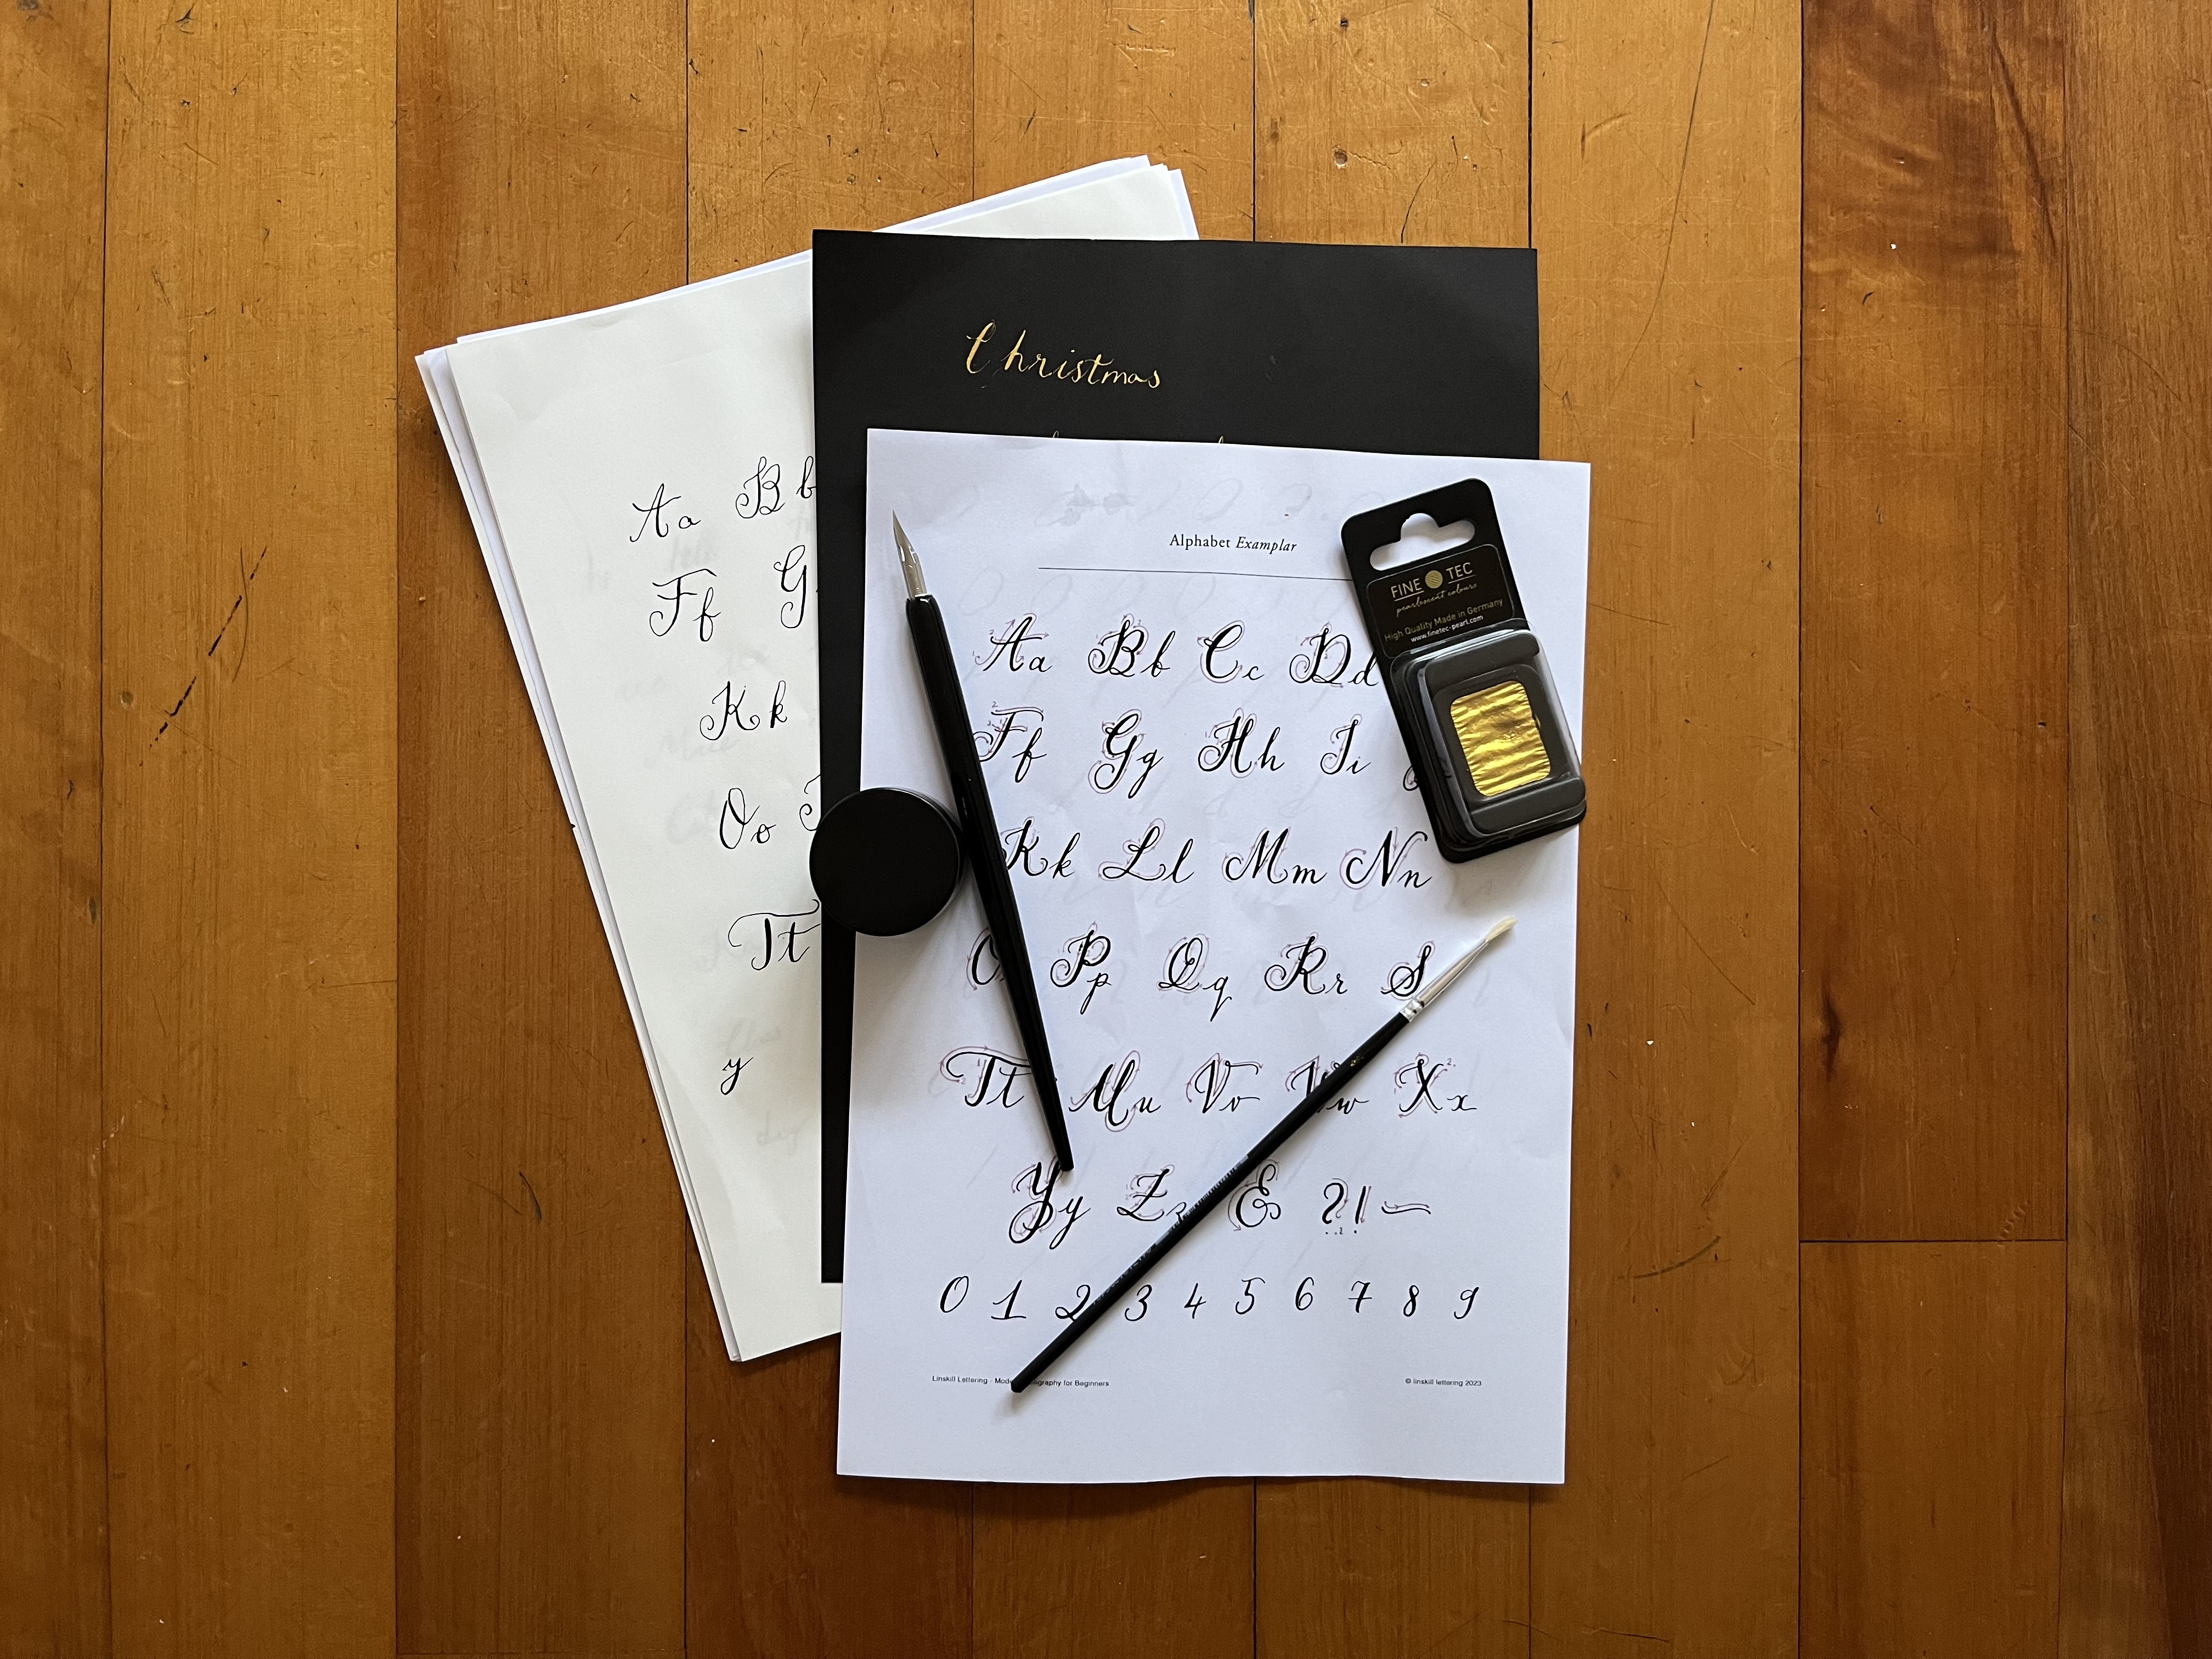 Christmas
Alphabet Examplar
Aa Bb Cc Dd
Ff Gg Hh Ii
Kk Ll Mm Nn
Pp Qq Rr S
Tt Uu Vv Ww Xx
Yy Zz & ?! ~
0 1 2 3 4 5 6 7 8 9
Linskill Lettering - for Beginners
© linskill lettering 2023
FINE TEC
pearlescent colours
High Quality Made in Germany
www.finetec-pearl.com
Aa Bb
Ff G
Kk
Oo
Tt
y